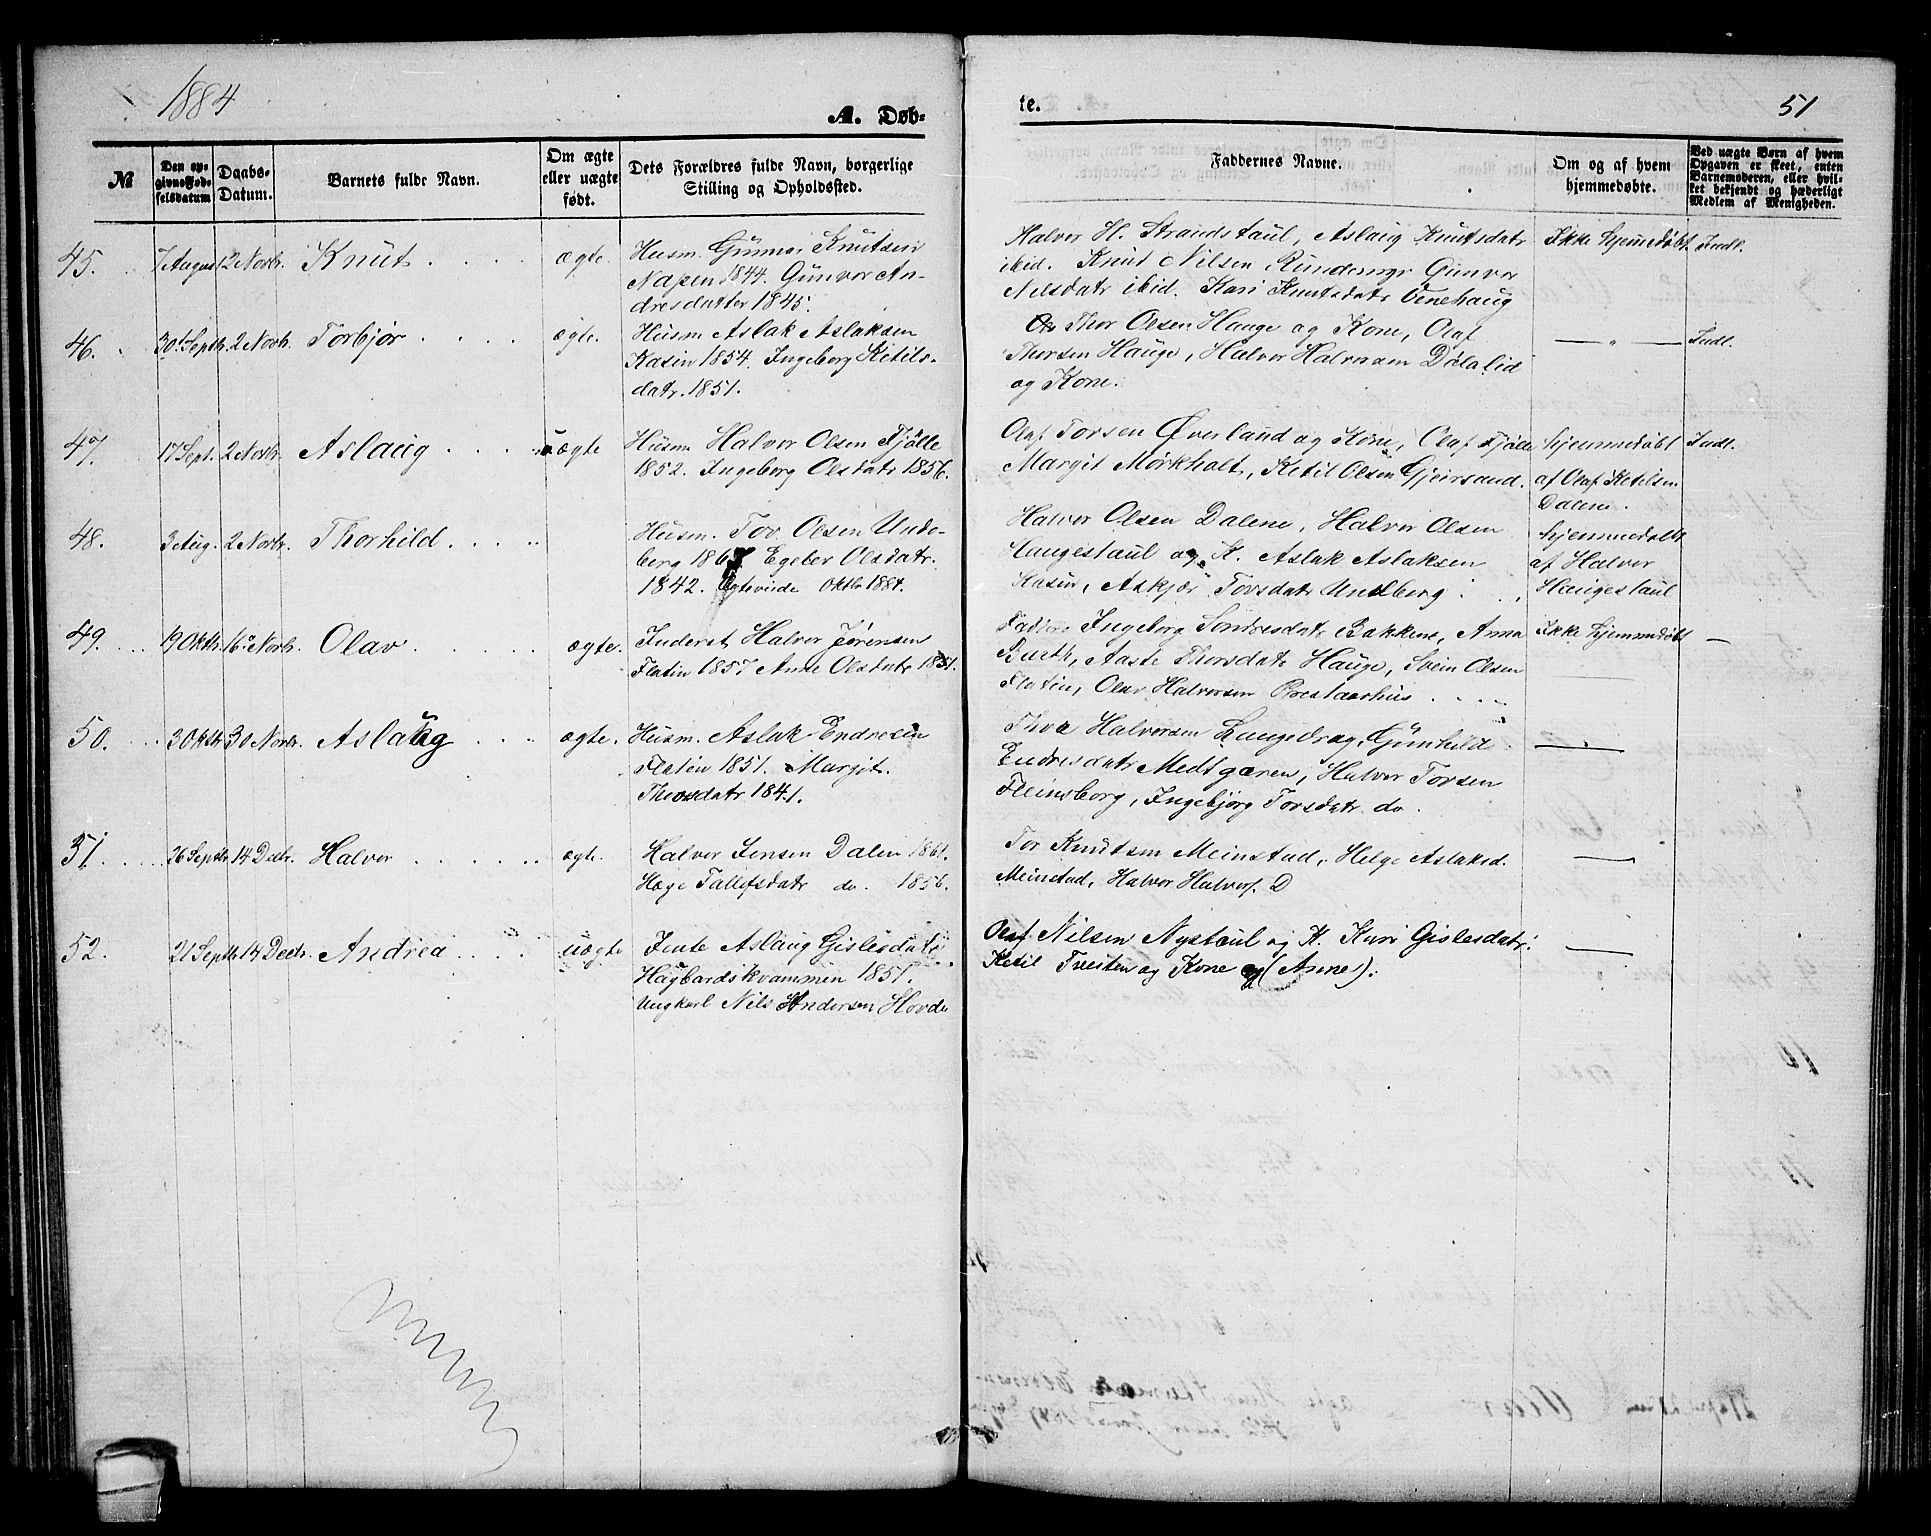 1884
A. Døb-
te.
51
№
Den opgivne Fødselsdatum
Daabs-Datum.
Barnets fulde Navn.
Om ægte eller uægte født.
Dets Forældres fulde Navn, borgerlige Stilling og Opholdssted.
Faddernes Navne.
Om og af hvem hjemmedøbte.
Ved uægte Børn af hvem Opgaven er skeet, enten Barnemoderen, eller hvilket bekjendt og hæderligt Medlem af Menigheden.
45. 7 August 2 Novbr. Knut ægte Husm. Gunnar Knutsen
Napen 1844. Gunvor An-
dresdatter 1845.
Halvor H. Strandstaul, Aslaug Knutsdatr
ibid. Knut Nilsen Rundemyr Gunvor
Nilsdatr ibid. Kari Knutsdatr Venehaug
Ikke hjemmedøbt Indl.
46. 30 Septbr. 2 Novbr. Torbjør ægte. Husm Aslak Aslaksen
Kasin 1854. Ingeborg Ketils-
datr. 1851.
Thor Olsen Hauge og Kone, Olaf
Thorsen Hauge, Halvor Halvorsen Dalalid
og Kone.
— " — Indl.
47. 17 Sept. 2 Novbr. Aslaug uægte Husm Halvor Olsen Fjølle
1852. Ingeborg Olsdatr 1856.
Olaf Torsen Øverland og Kone, Olaf Fjølle
Margit Mørkholt, Ketil Olsen Gjeirsund.
hjemmedøbt
af Olaf Ketilsen
Dalene.
Indl.
48. 3 Aug. 2 Novbr. Thorhild Husm. Tov Olsen Und-
berg 1867 Egeber Olsdatr.
1842. Ægteviede Oktbr 1884.
Halvor Olsen Dalene, Halvor Olsen
Haugestaul og K. Aslak Aslaksen
Kasin, Askjær Torsdatr Undberg
hjemmedøbt
af Halvor
Haugestaul
49. 19 Oktbr. 16 Novb. Olav ægte. Inderst Halvor Jørensen
Flatin 1857 Anne Olsdatr 1851.
Faddere Ingeborg Sondresdatr Bakkene, Anna
Burth, Aaste Thorsdatr Hauge, Svein Olsen
Flatin, Olav Halvorsen Prestaarhus
Ikke hjemmedøbt —
50. 3 Oktbr 30 Novbr. Aslaug ægte. Husm. Aslak Endresen
Flatin 1851. Margit
Thorsdatr 1841.
Thor Halvorsen Langedrag, Gunhild
Endresdatr Medtgaren, Halvor Torsen
Fleinsborg, Ingebjørg Torsdatr do.
51. 26 Septbr 14 Decbr. Halvor ægte. Halvor Jensen Dalen 1861.
Hæge Tallefsdatr do. 1856.
Tor Knutsen Meinstad, Helge Aslaksd.
Meinstad, Halvor Halvors. D
52. 21 Septbr 14 Decbr. Andrea uægte Jente Aslaug Gislesdatr
Hagbardskvammen 1851.
Ungkarl Nils Andersen Hovde
Olaf Nilsen Nystaul og K. Kari Gislesdatr:
Ketil Tveiten og Kone (Anne).